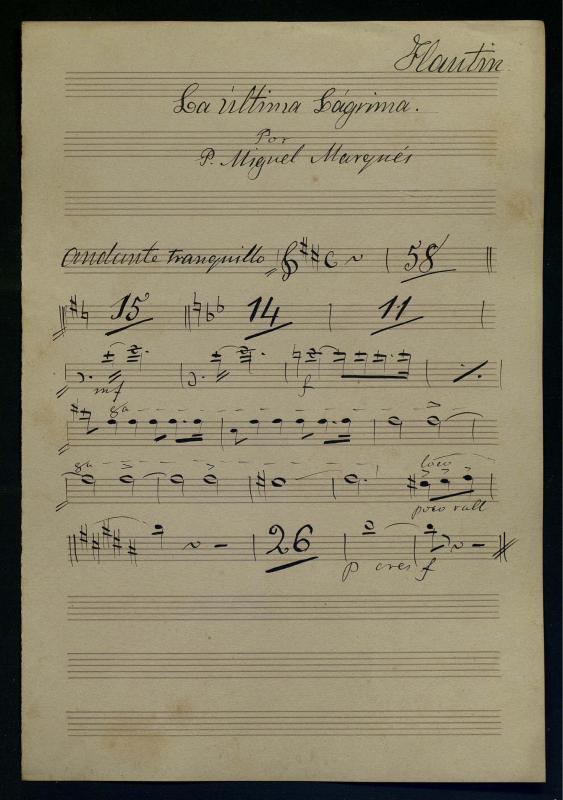 Flautin
La última Lágrima.
Por
P. Miguel Marqués
Andante tranquillo 58
15 14 11
mf f
8ª
8ª loco
poco rall
26
p cres f